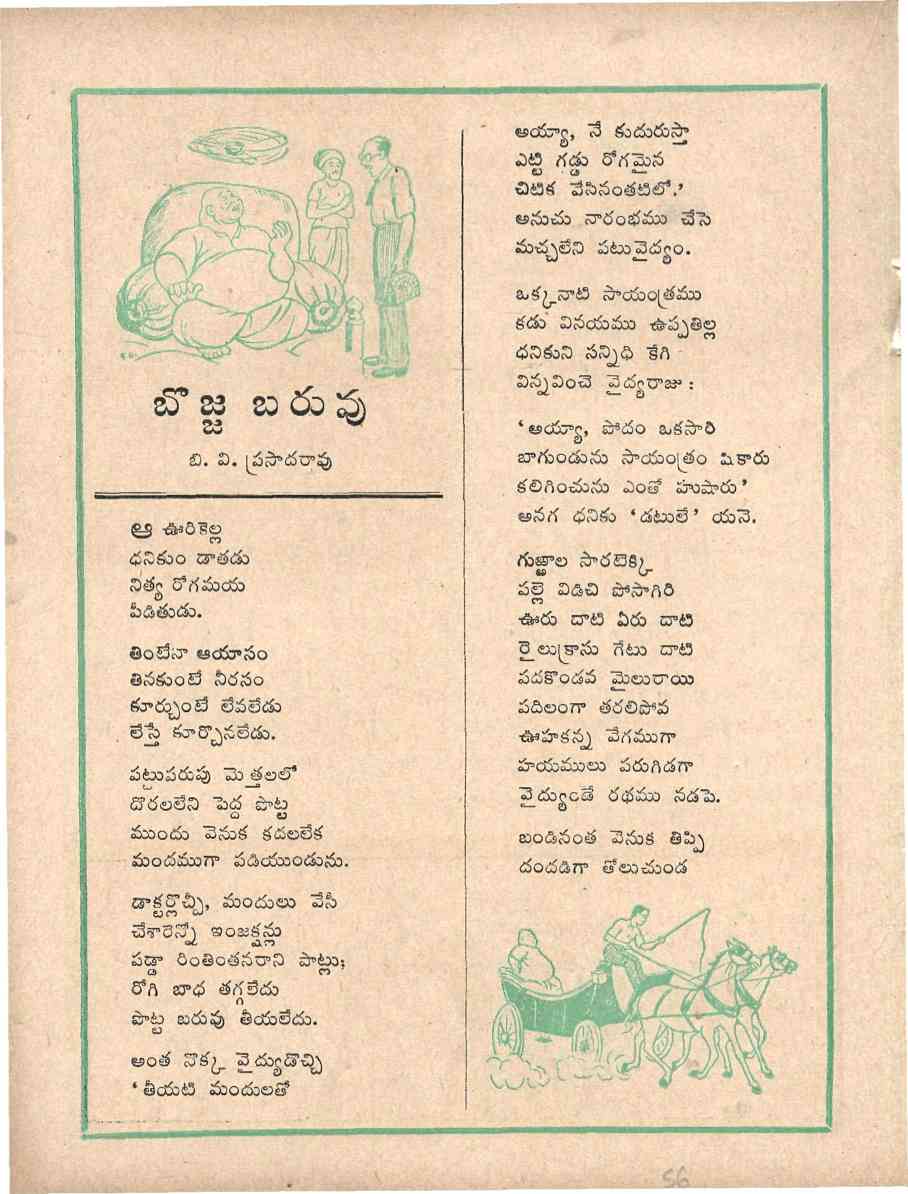 బొజ్జ బరువు
బి. వి. ప్రసాదరావు
ఆ ఊరికెల్ల
ధనికుం డాతడు
నిత్య రోగమయ
పీడితుడు.
తింటేనా ఆయాసం
తినకుంటే నీరసం
కూర్చుంటే లేవలేడు
లేస్తే కూర్చొనలేడు.
పట్టుపరుపు మెత్తలలో
దొరలలేని పెద్ద పొట్ట
ముందు వెనుక కదలలేక
మందముగా పడియుండును.
డాక్టర్లొచ్చీ, మందులు వేసీ
చేశారెన్నో ఇంజక్షన్లు
పడ్డా రింతింతనరాని పాట్లు;
రోగి బాధ తగ్గలేదు
పొట్ట బరువు తీయలేదు.
అంత నొక్క వైద్యుడొచ్చి
‘తీయటి మందులతో
అయ్యా, నే కుదురుస్తా
ఎట్టి గడ్డు రోగమైన
చిటిక వేసినంతటిలో.’
అనుచు నారంభము చేసె
మచ్చలేని పటువైద్యం.
ఒక్కనాటి సాయంత్రము
కడు వినయము ఉప్పతిల్ల
ధనికుని సన్నిధి కేగి
విన్నవించె వైద్యరాజు :
‘అయ్యా, పోదం ఒకసారి
బాగుండును సాయంత్రం షికారు
కలిగించును ఎంతో హుషారు’
అనగ ధనికు ‘డటులే’ యనె.
గుఱ్ఱాల సారటెక్కి
పల్లె విడిచి పోసాగిరి
ఊరు దాటి ఏరు దాటి
రైలుక్రాసు గేటు దాటి
పదకొండవ మైలురాయి
పదిలంగా తరలిపోవ
ఊహకన్న వేగముగా
హయములు పరుగిడగా
వైద్యుండే రథము నడపె.
బండినంత వెనుక తిప్పి
దందడిగా తోలుచుండ
56